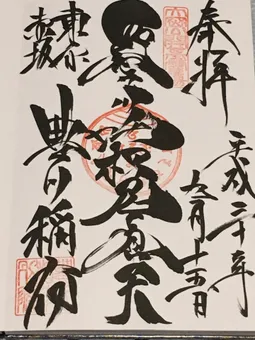 奉拝
平成二十年
九月十五日
吒枳尼眞天
東京
赤坂
豊川稲荷